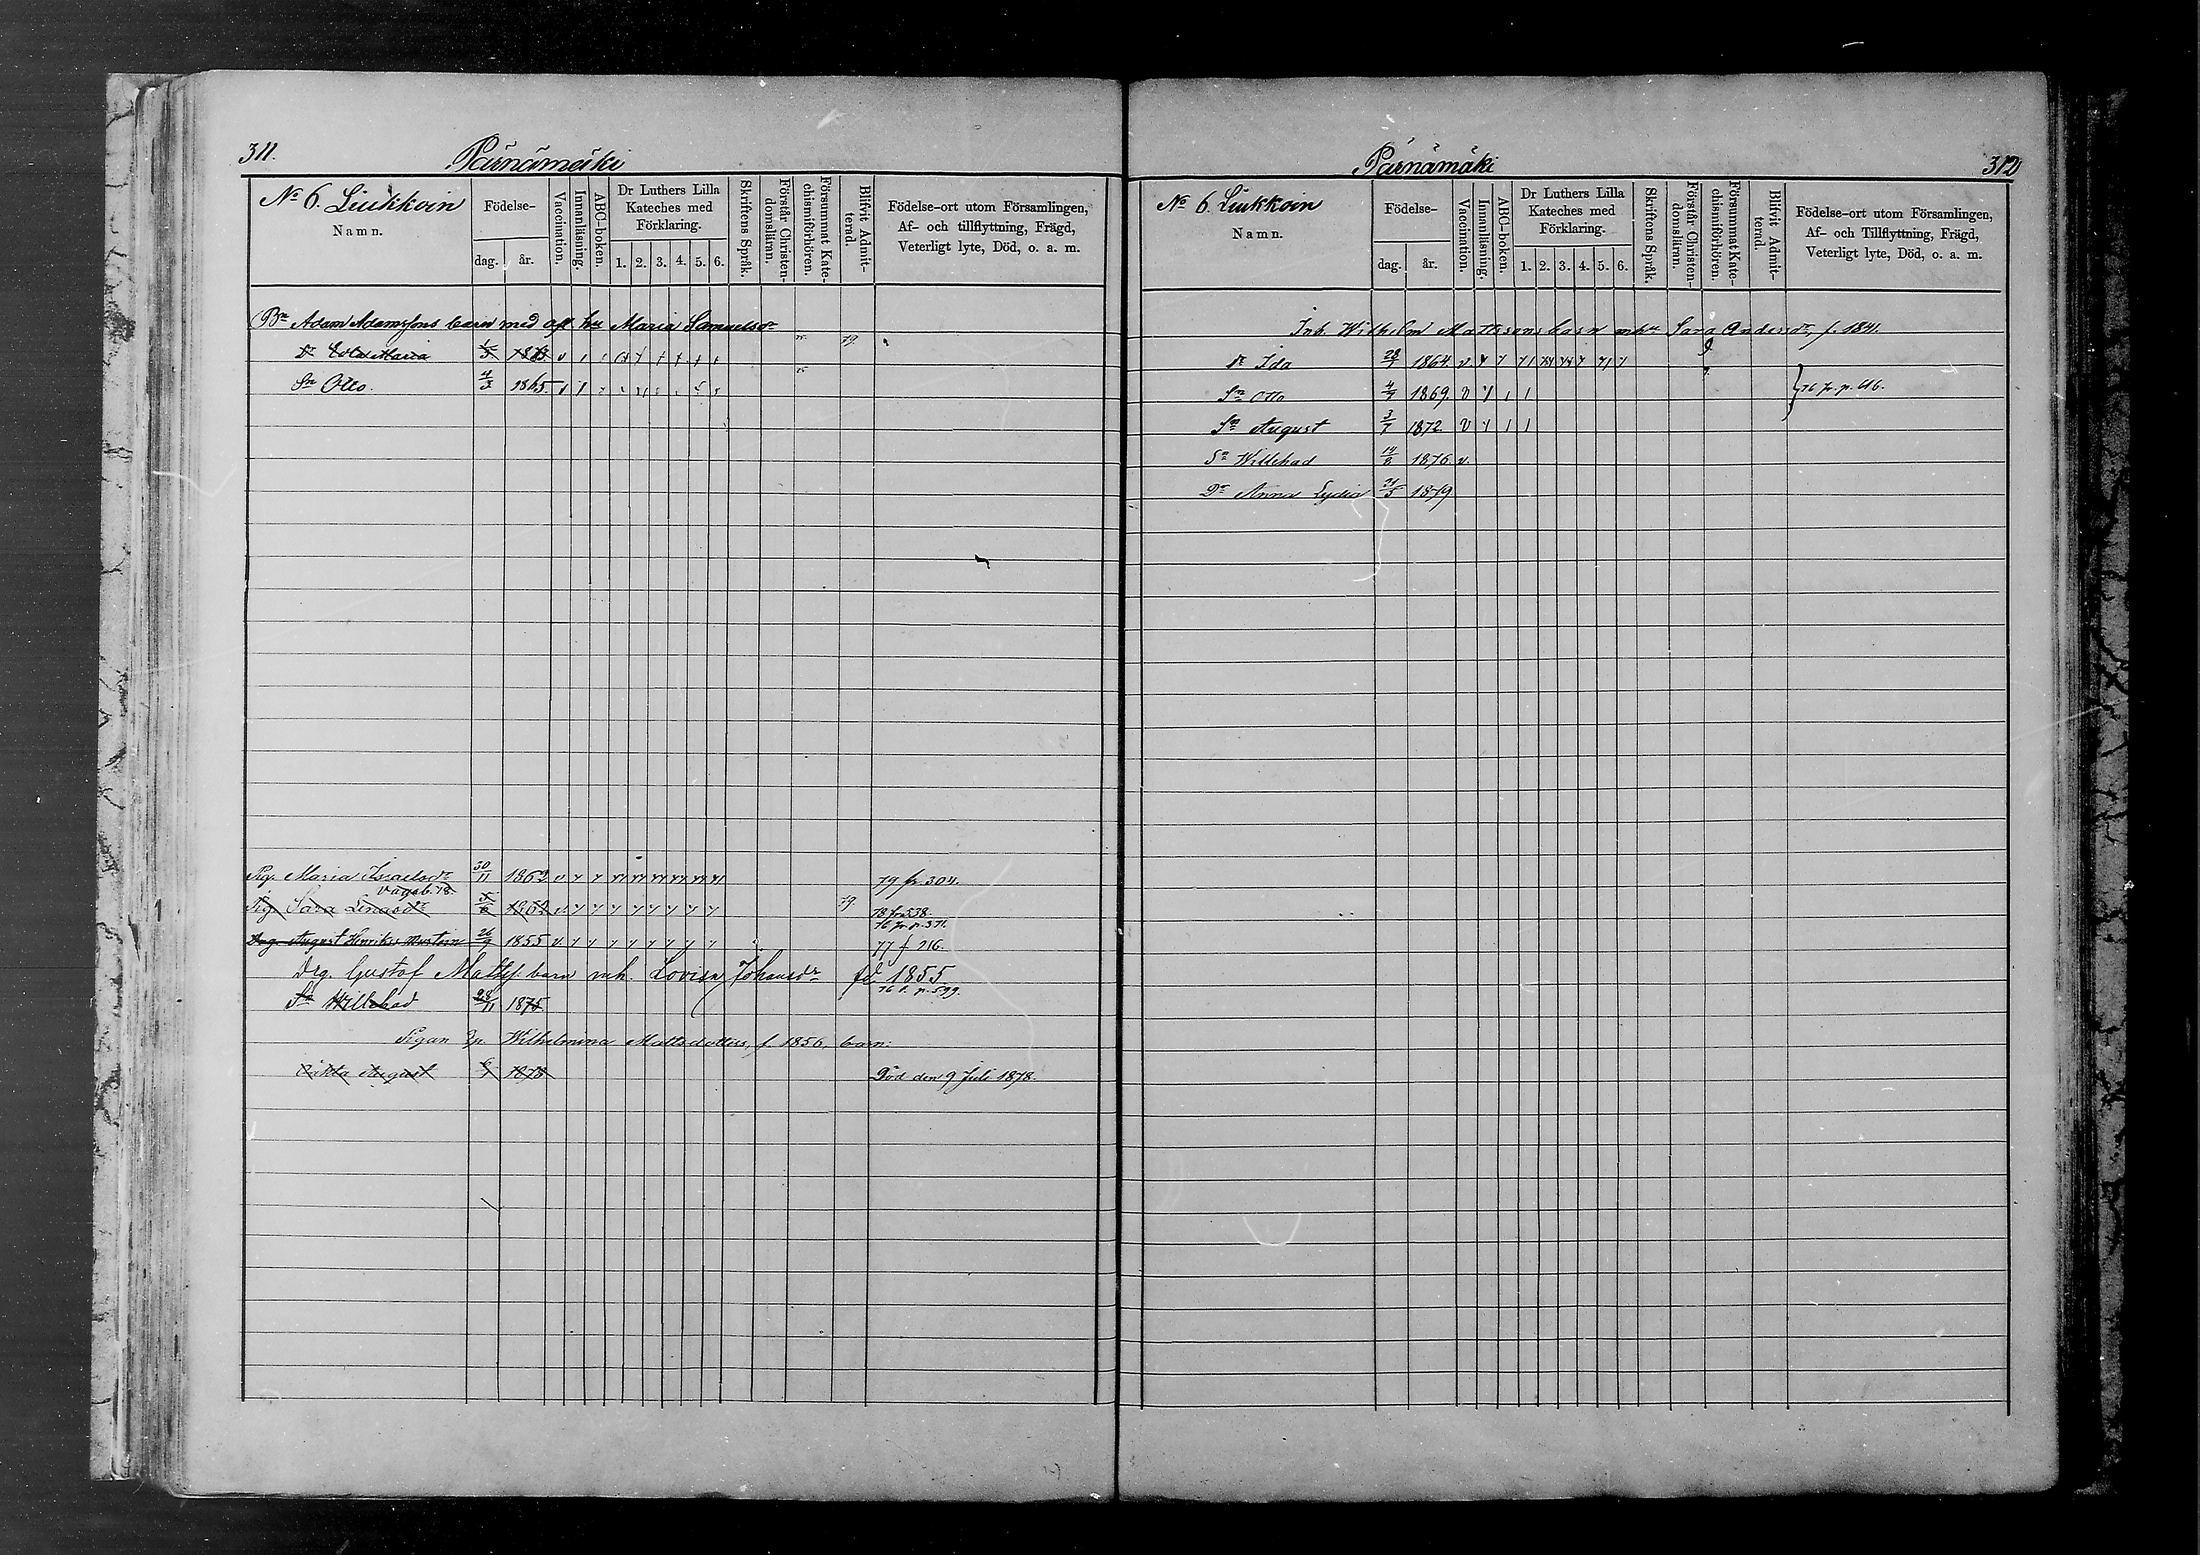 311.
Pärnämäki
No 6. Liukkoin
Namn.
Födelse-
dag.
år.
Vaccination.
Innanläsning.
ABC-boken.
Dr Luthers Lilla
Kateches med
Förklaring.
1. 2. 3. 4. 5. 6.
Skriftens Språk.
Förstår Christen-
domslärnn.
Försummat Kate-
chismiförhören.
Blifvit Admit-
terad.
Födelse-ort utom Församlingen,
Af- och tillflyttning, Frägd,
Veterligt lyte, Död, o. a. m.
Adam Adamssons barn med afl hu Maria Samuelsdr
Dr Eva Maria 1863 v 79
Sn Otto. 4/3 1865
Pig. Maria Israelsdr 30/11 1862 v 79 fr. 304.
vagab. 78
Pig. Sara Lenasdr 1862 v. 79 78 fr 538.
76 fr p. 371.
Drg. August Henrikss 26/9 1855 v. 77 f 216.
Drg. Gustaf Matts. barn mh. Lovisa Johansdr fd 1855
76 f. p. 599.
Sn Willehad 28/11 1875
Pigan Wilhelmina Mattsdotters, f. 1856, barn:
Oäkta August 1878 Död den 9 Juli 1878.
Pärnämäki
312
No 6. Liukkoin
Namn.
Födelse-
dag.
år.
Vaccination.
Innanläsning.
ABC-boken.
Dr Luthers Lilla
Kateches med
Förklaring.
1. 2. 3. 4. 5. 6.
Skriftens Språk.
Förstår Christen-
domslärnn.
Försummat Kate-
chismiförhören.
Blifvit Admit-
terad.
Födelse-ort utom Församlingen,
Af- och Tillflyttning, Frägd,
Veterligt lyte, Död, o. a. m.
Inh. Wilhelm Mattssons barn mhu Sara Andersdr, f. 1841.
dr Ida 1864 v.
Sn Otto 1869 v 76 fr. p. 616.
Sn August 3/7 1872 v
Sn Willehad 1876. v.
Dr Anna Lydia 21/5 1879